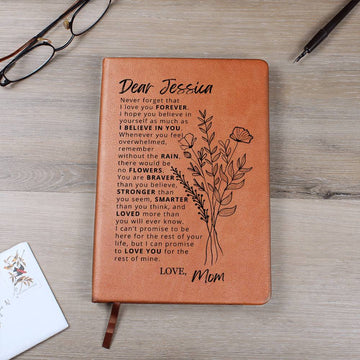 Dear Jessica
Never forget that
I love you FOREVER.
I hope you believe in
yourself as much as
I BELIEVE IN YOU.
Whenever you feel
overwhelmed,
remember
without the RAIN,
there would be
no FLOWERS.
You are BRAVER
than you believe,
STRONGER than
you seem, SMARTER
than you think, and
LOVED more than
you will ever know.
I can't promise to be
here for the rest of your
life, but I can promise
to LOVE YOU for the
rest of mine.
LOVE, Mom